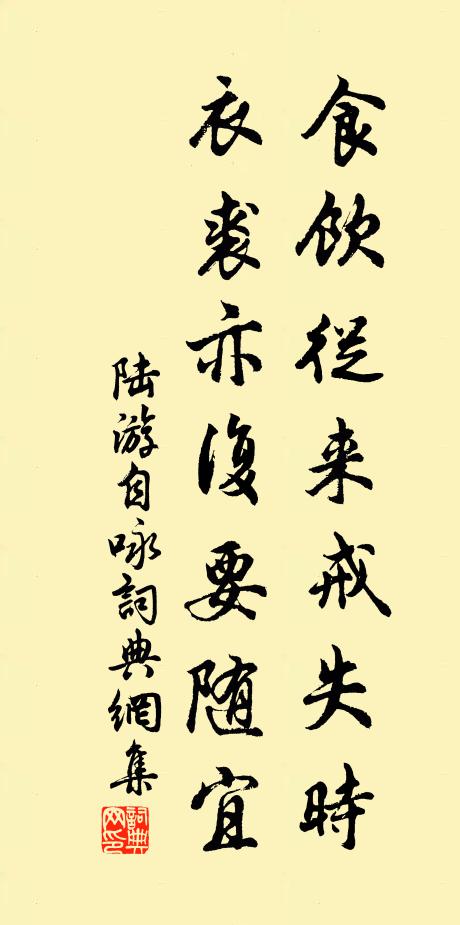 食飲從来戒失時
衣裘亦復要随宜
陆游自咏詞典網集
詞典网印